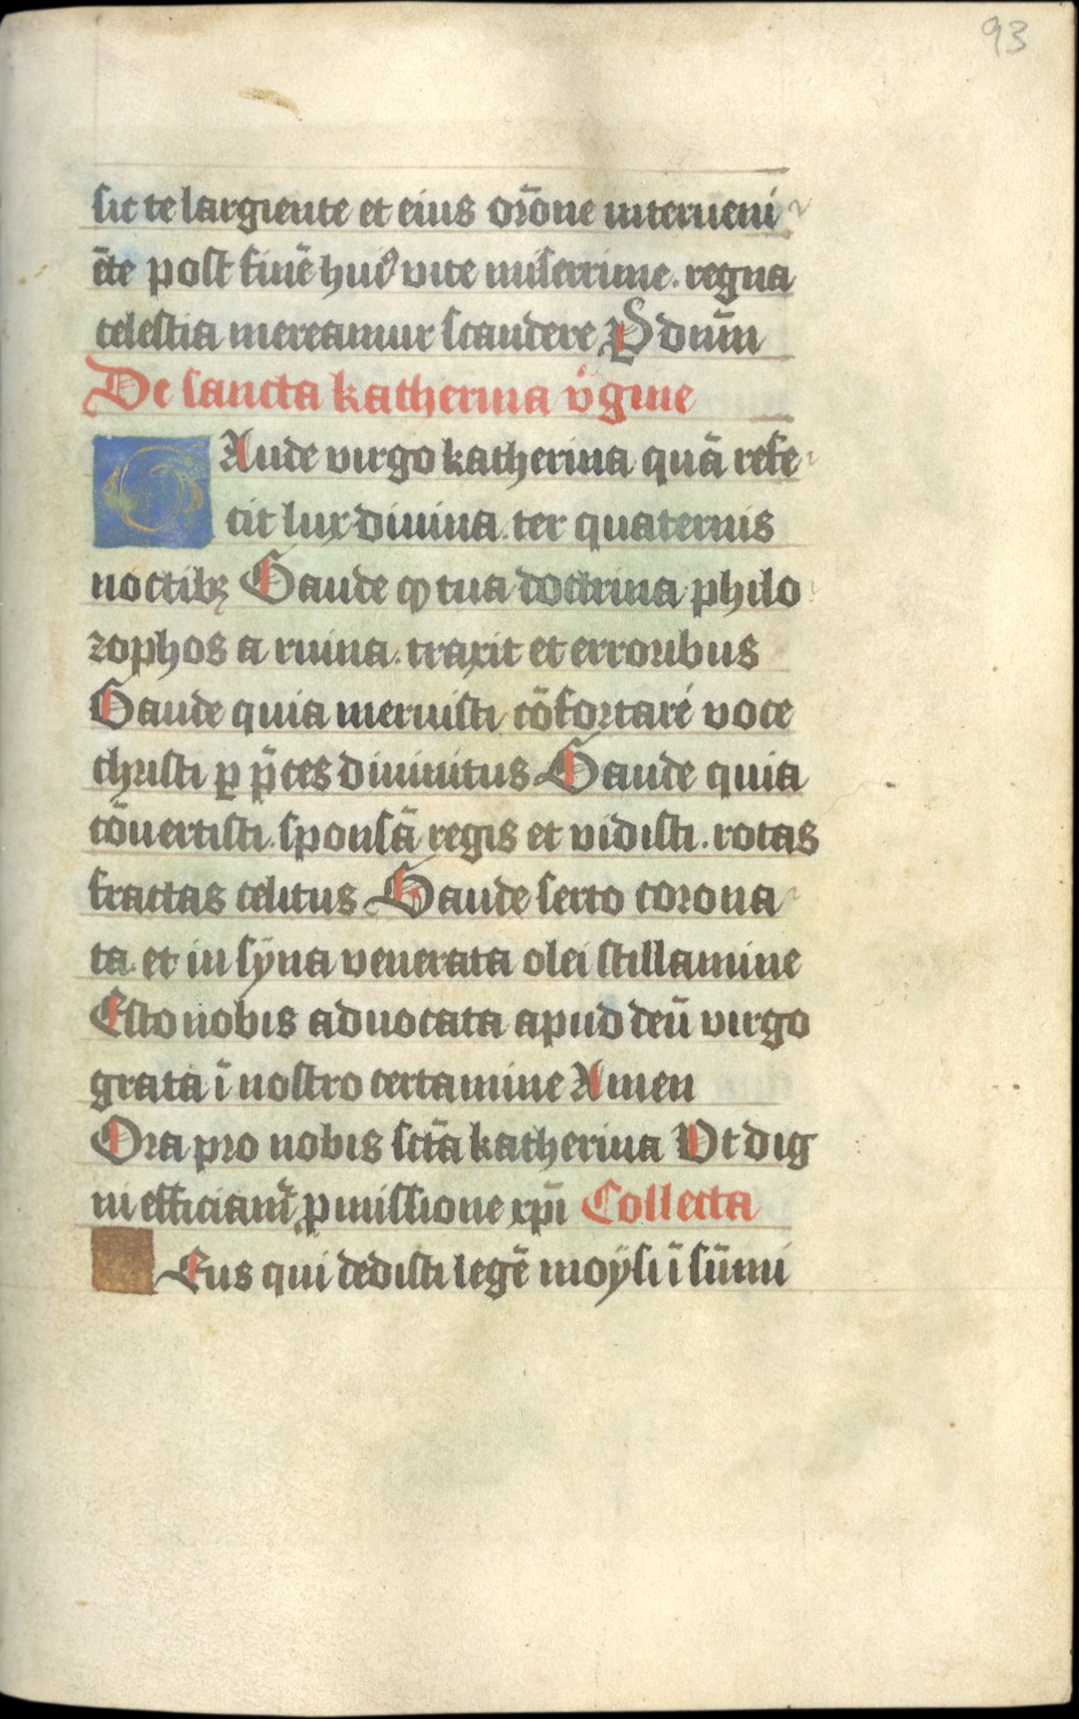 93
sic te largiente et eius or̄one interueni
ēte post finē huiꝰ vite miserrime. regna
celestia mereamur scandere P dn̄m
De sancta katherina v̄gine
GAude virgo katherina quā refe
cit lux diuina. ter quaternis
noctibꝫ Gaude ꝙ tua doctrina philo
zophos a ruina. traxit et erroribus
Gaude quia meruisti cōfortare voce
christi ꝑ p̄ces diuinitus Gaude quia
cōuertisti. sponsā regis et vidisti. rotas
fractas celitus Gaude serto corona
ta. et in sÿna venerata olei stillamine
Esto nobis aduocata apud deū virgo
grata ī nostro certamine Amen
Ora pro nobis sct̄a katherina Vt dig
ni efficiam̄ ꝓmissione xp̄i Collecta
Deus qui dedisti legē moÿsi ī sūmi